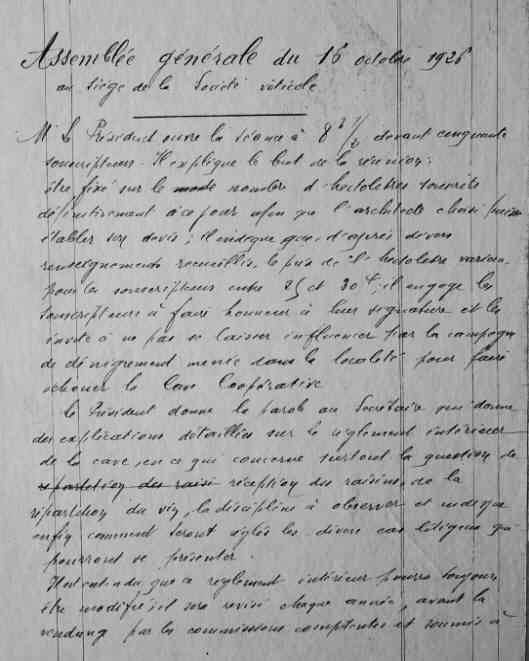 Assemblée générale du 16 octobre 1926
au siège de la Société viticole
M. le Président ouvre la séance à 8 h 1/2 devant cinquante
souscripteurs. Il explique le but de la réunion :
être fixé sur le nombre d'hectolitres souscrits
définitivement à ce jour afin que l'architecte choisi puisse
établir son devis ; il indique que, d'après divers
renseignements recueillis, le prix de l'hectolitre variera
pour les souscripteurs entre 25 et 30 f ; il engage les
souscripteurs à faire honneur à leur signature et les
invite à ne pas se laisser influencer par la campagne
de dénigrement menée dans la localité pour faire
échouer la Cave Coopérative
Le Président donne la parole au Secrétaire qui donne
des explications détaillées sur le règlement intérieur
de la cave, en ce qui concerne surtout la question de
répartition des raisi réception des raisins, de la
répartition du vin, la discipline à observer et indique
enfin comment seront réglés les divers cas litigieux qui
pourront se présenter.
Il est entendu que ce règlement intérieur pourra toujours
être modifié ; il sera revisé chaque année, avant la
vendange par les commissions compétentes et soumis à